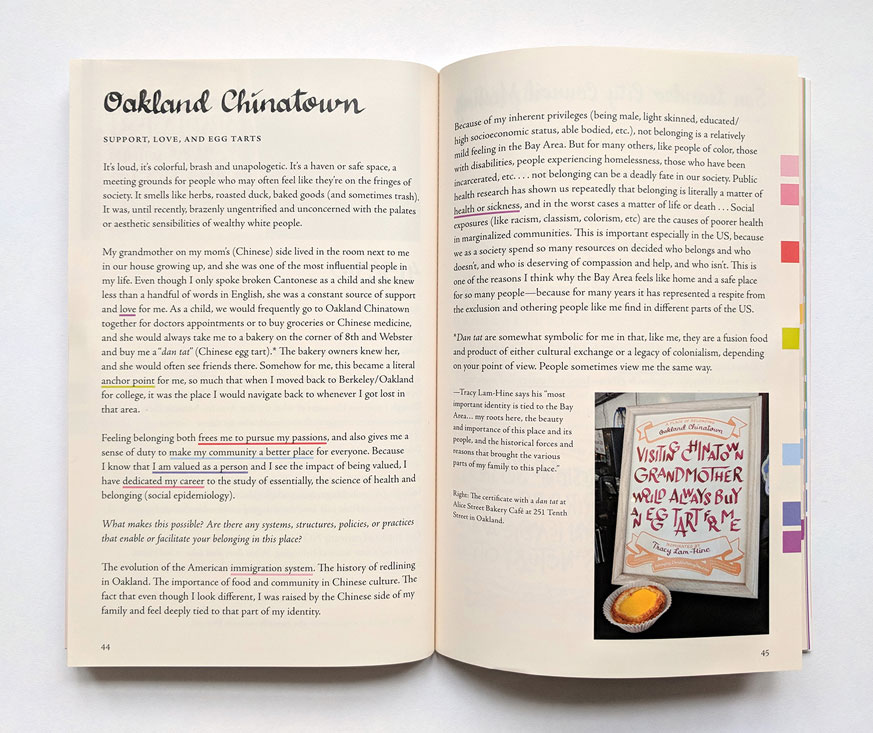 Oakland Chinatown
SUPPORT, LOVE, AND EGG TARTS
It's loud, it's colorful, brash and unapologetic. It's a haven or safe space, a
meeting grounds for people who may often feel like they're on the fringes of
society. It smells like herbs, roasted duck, baked goods (and sometimes trash).
It was, until recently, brazenly ungentrified and unconcerned with the palates
or aesthetic sensibilities of wealthy white people.
My grandmother on my mom's (Chinese) side lived in the room next to me
in our house growing up, and she was one of the most influential people in
my life. Even though I only spoke broken Cantonese as a child and she knew
less than a handful of words in English, she was a constant source of support
and love for me. As a child, we would frequently go to Oakland Chinatown
together for doctors appointments or to buy groceries or Chinese medicine,
and she would always take me to a bakery on the corner of 8th and Webster
and buy me a "dan tat" (Chinese egg tart).* The bakery owners knew her,
and she would often see friends there. Somehow for me, this became a literal
anchor point for me, so much that when I moved back to Berkeley/Oakland
for college, it was the place I would navigate back to whenever I got lost in
that area.
Feeling belonging both frees me to pursue my passions, and also gives me a
sense of duty to make my community a better place for everyone. Because
I know that I am valued as a person and I see the impact of being valued, I
have dedicated my career to the study of essentially, the science of health and
belonging (social epidemiology).
What makes this possible? Are there any systems, structures, policies, or practices
that enable or facilitate your belonging in this place?
The evolution of the American immigration system. The history of redlining
in Oakland. The importance of food and community in Chinese culture. The
fact that even though I look different, I was raised by the Chinese side of my
family and feel deeply tied to that part of my identity.
44
Because of my inherent privileges (being male, light skinned, educated/
high socioeconomic status, able bodied, etc.), not belonging is a relatively
mild feeling in the Bay Area. But for many others, like people of color, those
with disabilities, people experiencing homelessness, those who have been
incarcerated, etc. . . . not belonging can be a deadly fate in our society. Public
health research has shown us repeatedly that belonging is literally a matter of
health or sickness, and in the worst cases a matter of life or death . . . Social
exposures (like racism, classism, colorism, etc) are the causes of poorer health
in marginalized communities. This is important especially in the US, because
we as a society spend so many resources on decided who belongs and who
doesn't, and who is deserving of compassion and help, and who isn't. This is
one of the reasons I think why the Bay Area feels like home and a safe place
for so many people—because for many years it has represented a respite from
the exclusion and othering people like me find in different parts of the US.
*Dan tat are somewhat symbolic for me in that, like me, they are a fusion food
and product of either cultural exchange or a legacy of colonialism, depending
on your point of view. People sometimes view me the same way.
—Tracy Lam-Hine says his "most
important identity is tied to the Bay
Area... my roots here, the beauty
and importance of this place and its
people, and the historical forces and
reasons that brought the various
parts of my family to this place."
Right: The certificate with a dan tat at
Alice Street Bakery Café at 251 Tenth
Street in Oakland.
Oakland Chinatown
VISITING CHINATOWN
GRANDMOTHER
WOULD ALWAYS BUY
AN EGG TART FOR ME
NOMINATED BY
Tracy Lam-Hine
45